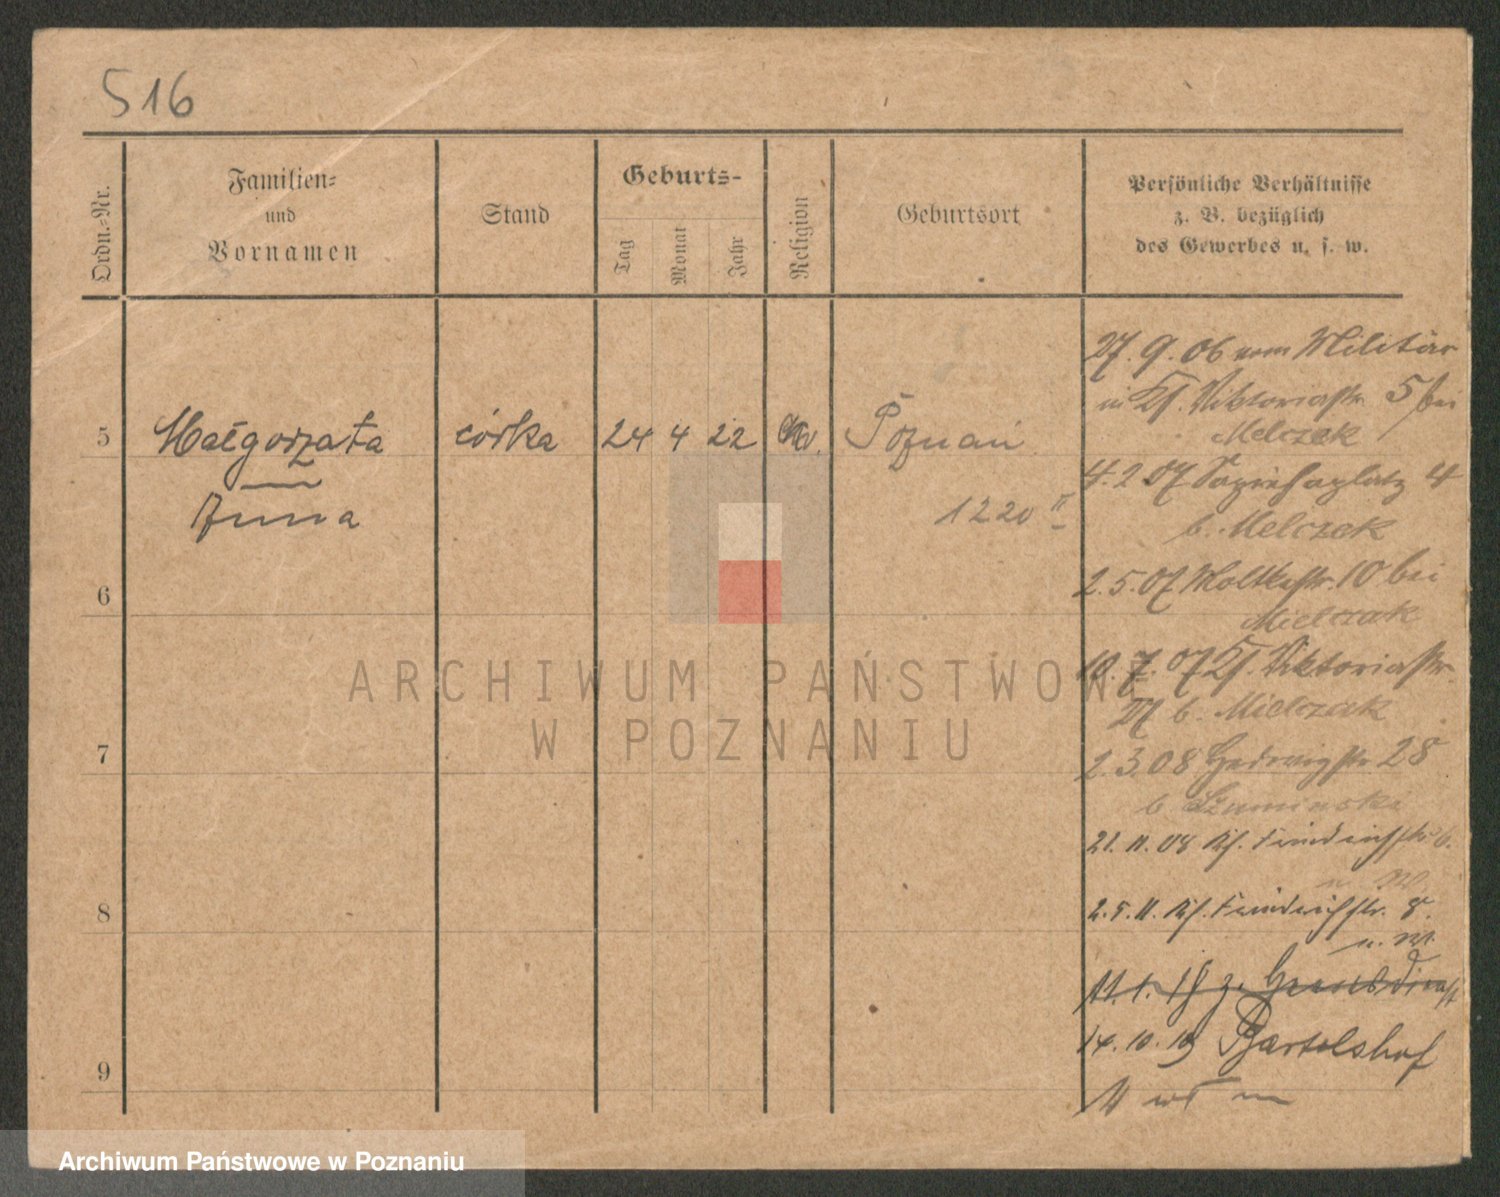 516
Ordn.-Nr.
Familien-
und
Vornamen
Stand
Geburts-
Tag
Monat
Jahr
Religion
Geburtsort
Persönliche Verhältnisse
z. B. bezüglich
des Gewerbes u. s. w.
5 Małgorzata córka 24 4 22 Poznań
Anna
1220 II
6
7
8
9
27. 9. 06 vom Militär
in Kl. Viktoriastr. 5 bei
Melczak
4. 2 07 Sapiehaplatz 4
b. Melczak
2. 5. 07 Moltkestr. 10 bei
Mielczak
7. 07 Kl. Viktoriastr.
27 b. Mielczak
2. 3. 08 Hedwigstr 28
b Szuminski
21. 11. 08 Friedrichstr
2. 5. 11. Friedrichstr. 8.
u. W.
11. 1.
14. 10. 19 Bartelshof
ARCHIWUM PAŃSTWOWE
W POZNANIU
Archiwum Państwowe w Poznaniu